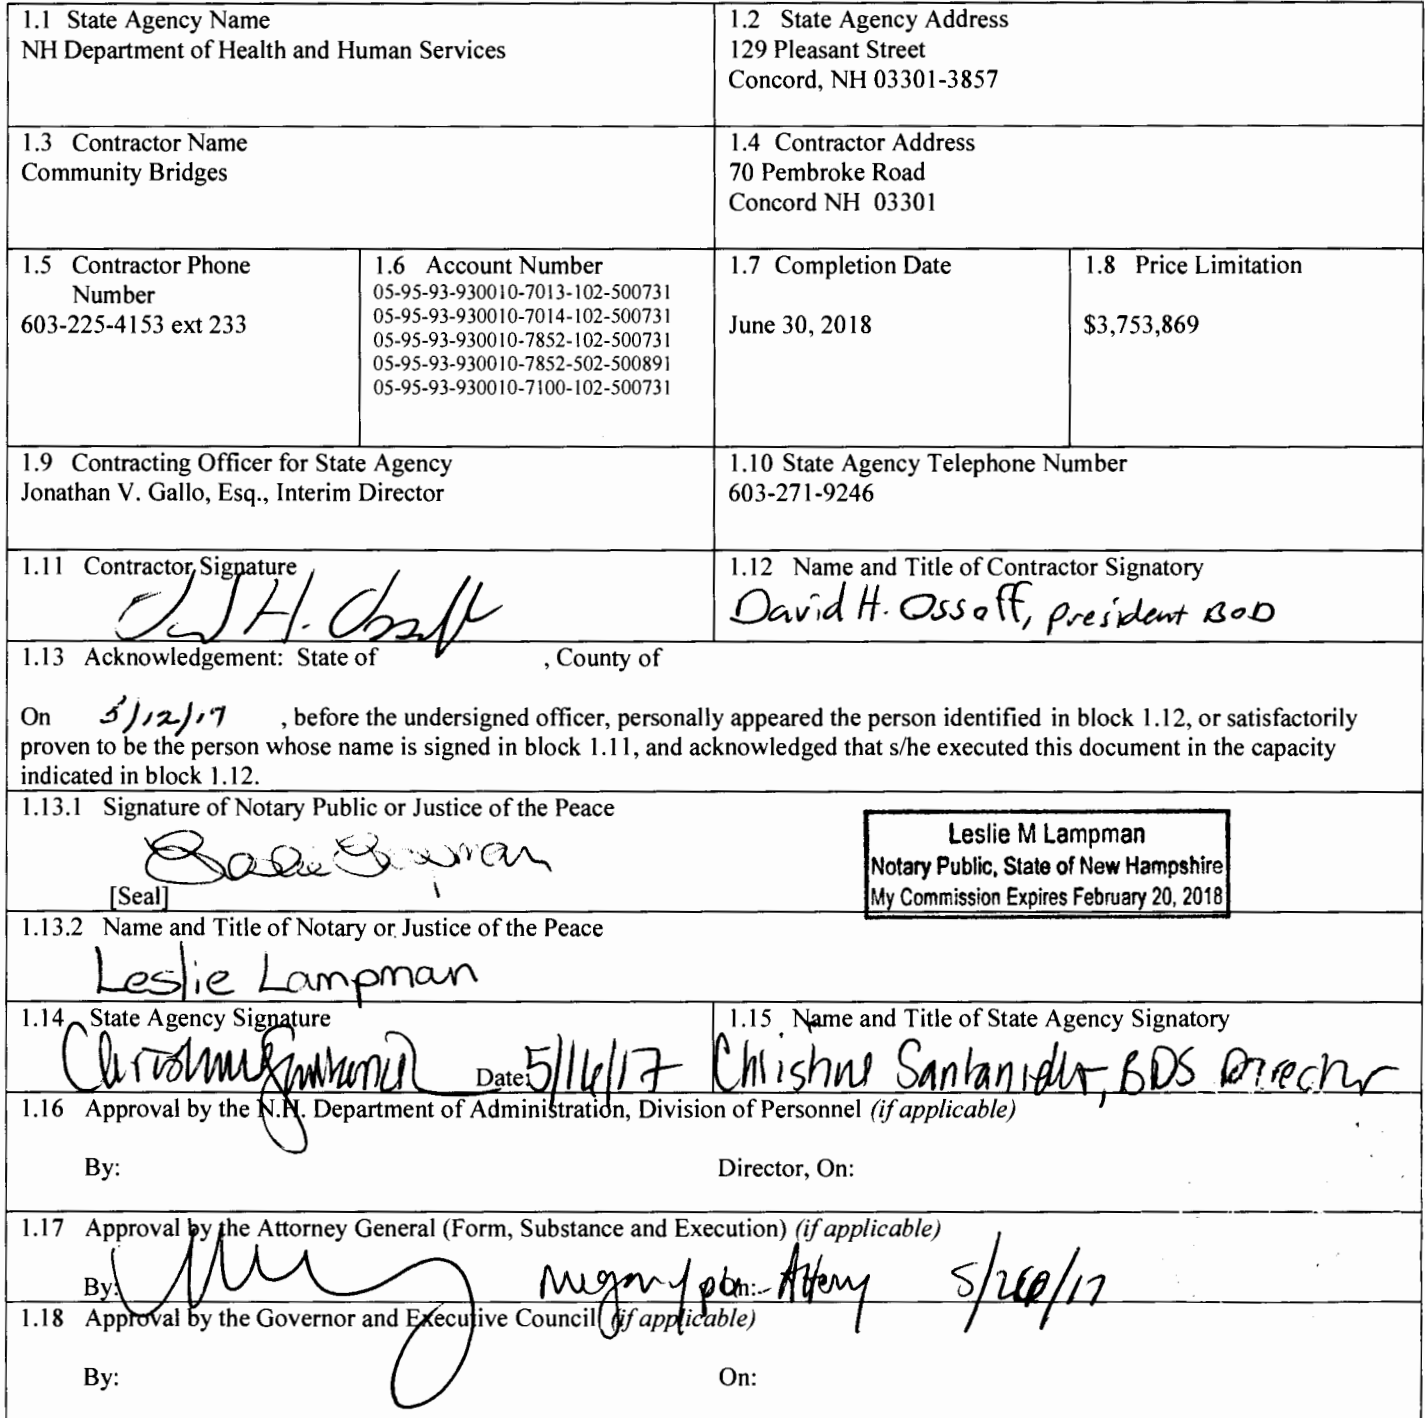 1.1 State Agency Name
NH Department of Health and Human Services
1.2 State Agency Address
129 Pleasant Street
Concord, NH 03301-3857
1.3 Contractor Name
Community Bridges
1.4 Contractor Address
70 Pembroke Road
Concord NH 03301
1.5 Contractor Phone
Number
603-225-4153 ext 233
1.6 Account Number
05-95-93-930010-7013-102-500731
05-95-93-930010-7014-102-500731
05-95-93-930010-7852-102-500731
05-95-93-930010-7852-502-500891
05-95-93-930010-7100-102-500731
1.7 Completion Date
June 30, 2018
1.8 Price Limitation
$3,753,869
1.9 Contracting Officer for State Agency
Jonathan V. Gallo, Esq., Interim Director
1.10 State Agency Telephone Number
603-271-9246
1.11 Contractor Signature
H. Ossoff
1.12 Name and Title of Contractor Signatory
David H. Ossoff, President BOD
1.13 Acknowledgement: State of , County of
On 5/12/17 , before the undersigned officer, personally appeared the person identified in block 1.12, or satisfactorily
proven to be the person whose name is signed in block 1.11, and acknowledged that s/he executed this document in the capacity
indicated in block 1.12.
1.13.1 Signature of Notary Public or Justice of the Peace
Leslie Lampman
[Seal]
Leslie M Lampman
Notary Public, State of New Hampshire
My Commission Expires February 20, 2018
1.13.2 Name and Title of Notary or Justice of the Peace
Leslie Lampman
1.14 State Agency Signature
Date: 5/16/17
1.15 Name and Title of State Agency Signatory
Christine Santaniello, BDS Director
1.16 Approval by the N.H. Department of Administration, Division of Personnel (if applicable)
By: Director, On:
1.17 Approval by the Attorney General (Form, Substance and Execution) (if applicable)
By: On: 5/26/17
1.18 Approval by the Governor and Executive Council (if applicable)
By: On: